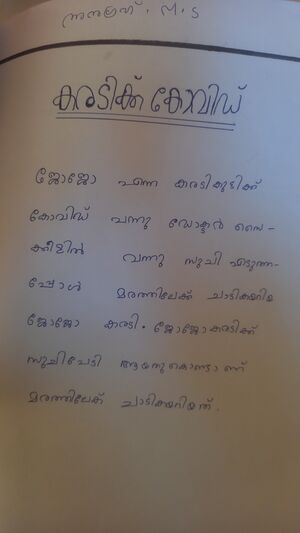 അനുഗ്രഹ്. M.S
കരടിക്ക് കോവിഡ്
ജോജോ എന്ന കരടികുട്ടിക്ക്
കോവിഡ് വന്നു ഡോക്ടർ സൈ-
ക്കിളിൽ വന്നു സൂചി എടുത്ത-
പ്പോൾ മരത്തിലേക്ക് ചാടിക്കയറിയ
ജോജോ കരടി. ജോജോകരടിക്ക്
സൂചിപേടി ആയതുകൊണ്ടാണ്
മരത്തിലേക്ക് ചാടിക്കയറിയത്.